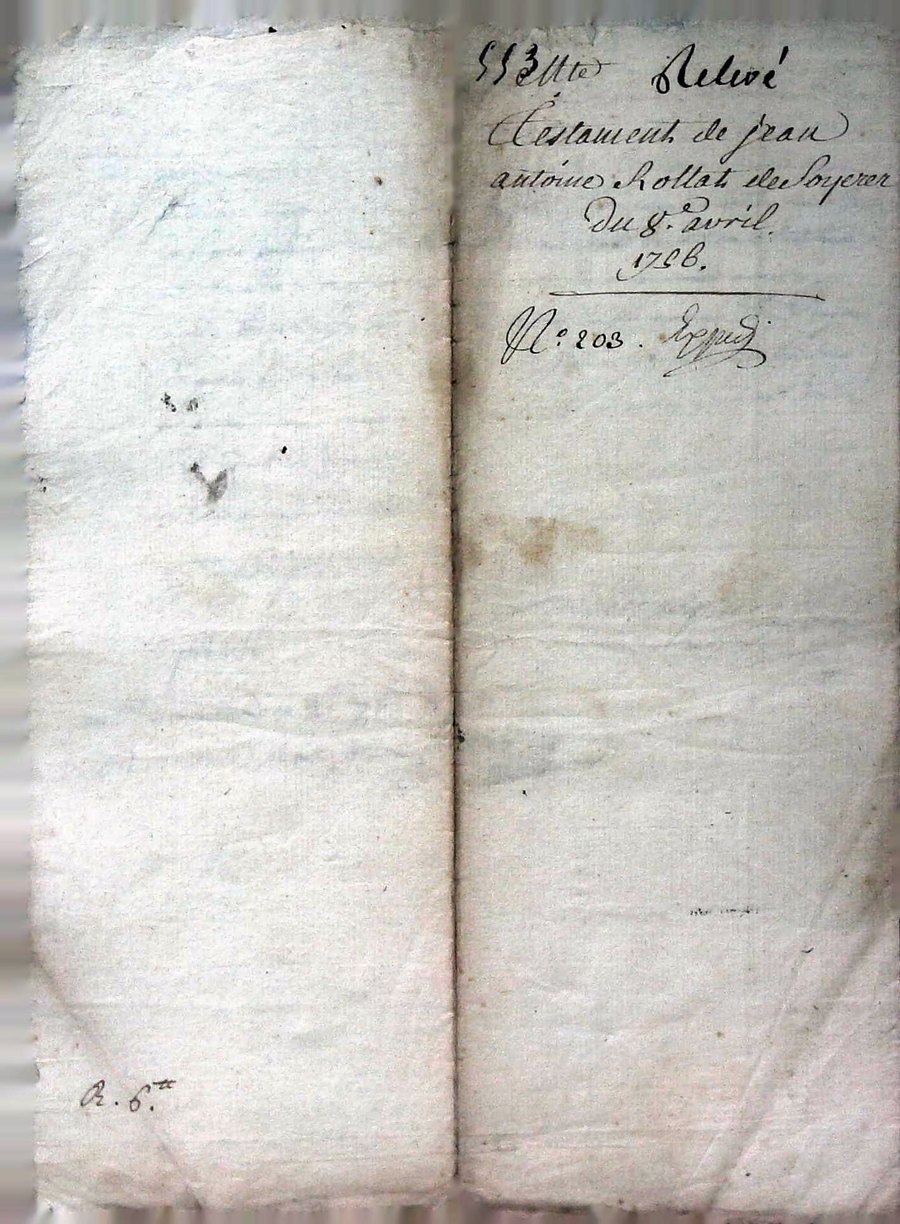 Relevé
Testament de jean
antoine Rollat de Soyerer
Du 8.e avril.
1756.
N.o 203. Expedi
R. 6.tt